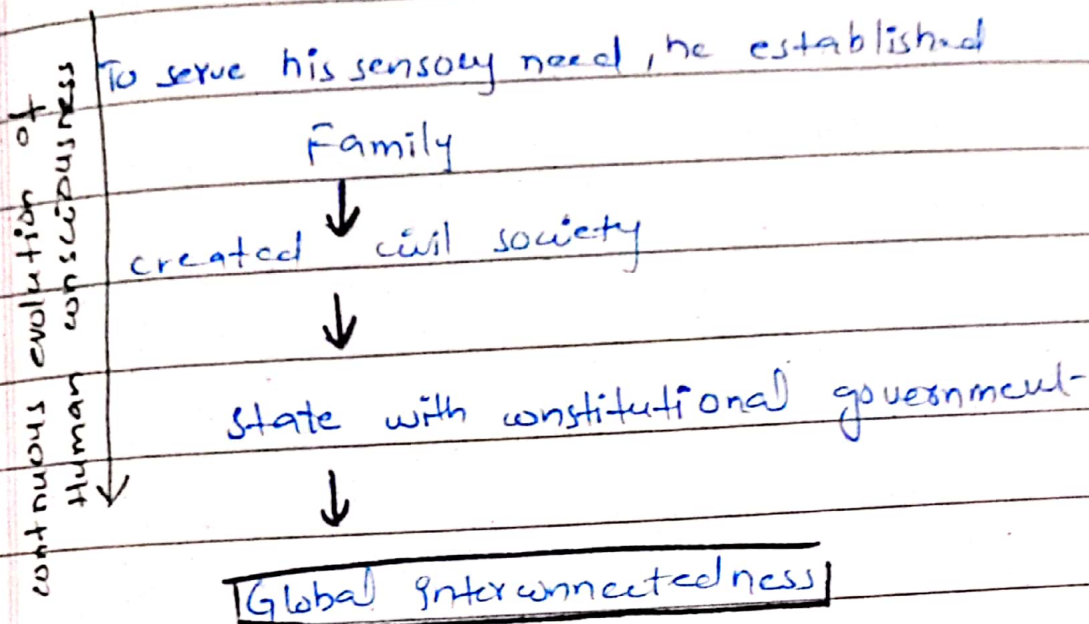 continuous evolution of
Human consciousness
To serve his sensory need, he established
Family
↓
created civil society
↓
State with constitutional government
↓
Global Interconnectedness